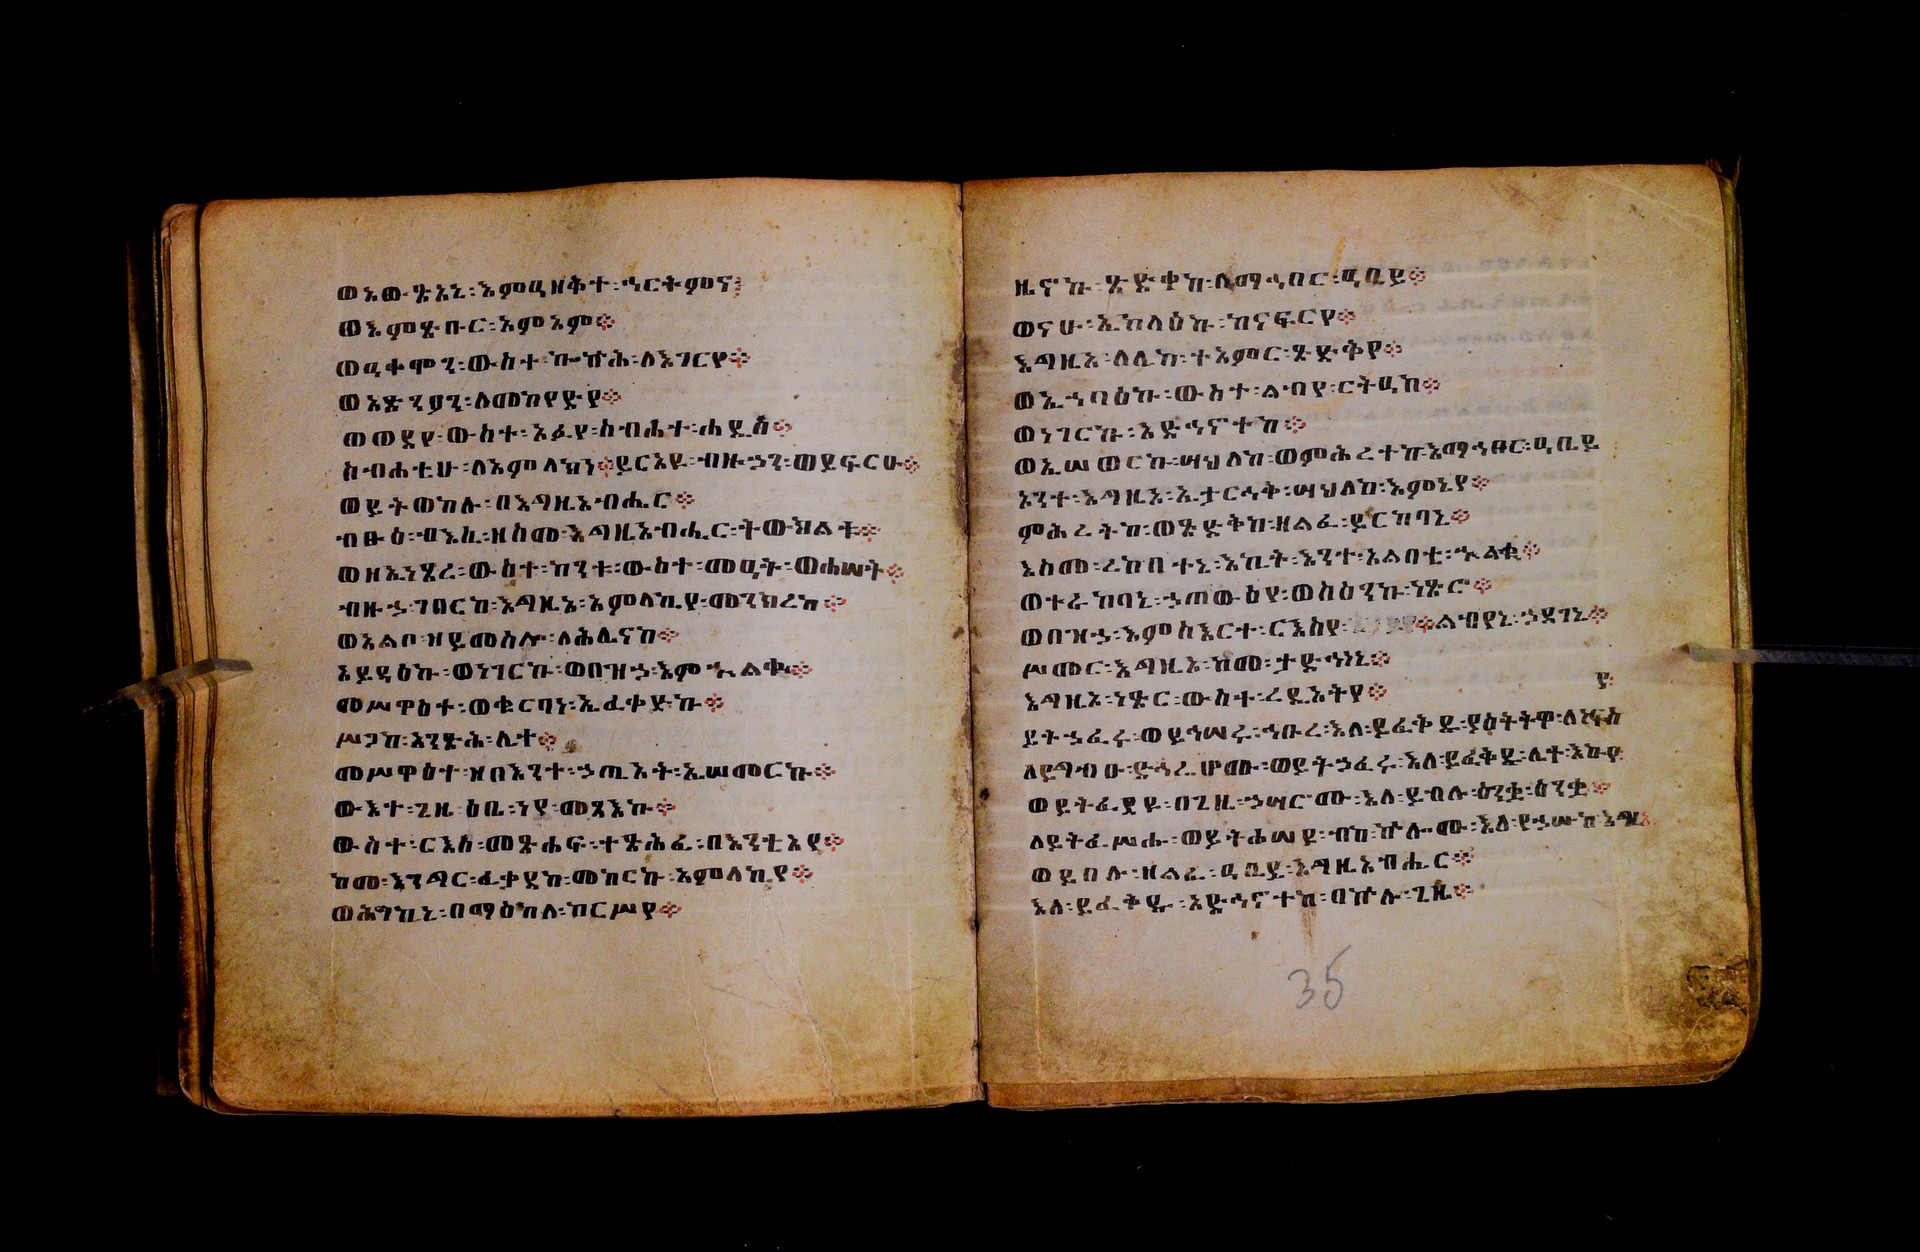 ወአውፅአኒ፡እምዐዘቅተ፡ኀርትምና፤
ወእምፄቡር፡አምአም፨
ወዐቀሞን፡ውስተ፡ኰኵሕ፡ለእገርየ፨
ወአጽንዖን፡ለመከየድየ፨
ወወደየ፡ውስተ፡አፉየ፡ስብሐተ፡ሐዲሰ፨
ስብሐቲሁ፡ለአምላክነ፨ይርአዩ፡ብዙኃን፡ወይፍርሁ፨
ወይትወከሉ፡በእግዚአብሔር፨
ብፁዕ፡ብእሲ፡ዘስመ፡እግዚአብሔር፡ትውክልቱ፨
ወዘኢነጸረ፡ውስተ፡ከንቱ፡ውስተ፡መዐት፡ወሐሠት፨
ብዙኃ፡ገበርከ፡እግዚኦ፡አምላኪየ፡መንክረከ፨
ወአልቦ፡ዘይመስሎ፡ለሕሊናከ፨
አይዳዕኩ፡ወነገርኩ፡ወበዝኃ፡እምኈልቁ፨
መሥዋዕተ፡ወቁርባነ፡ኢፈቀድኩ፨
ሥጋከ፡አንጽሕ፡ሊተ፨
መሥዋዕተ፡ዘበእንተ፡ኃጢአት፡ኢሠመርኩ፨
ውእተ፡ጊዜ፡ዕቤ፡ነየ፡መጻእኩ፨
ውስተ፡ርእሰ፡መጽሐፍ፡ተጽሕፈ፡በእንቲአየ፨
ከመ፡እንግር፡ፈቃደከ፡መከርኩ፡አምላኪየ፨
ወሕግከኒ፡በማዕከለ፡ከርሥየ፨
ዜኖኩ፡ጽድቀከ፡ለማኅበር፡ዐቢይ፨
ወናሁ፡ኢከላዕኩ፡ከናፍርየ፨
እግዚኦ፡ለሊከ፡ተአምር፡ጽድቅየ፨
ወኢኀባዕኩ፡ውስተ፡ልብየ፡ርትዐከ፨
ወነገርኩ፡አድኅኖተከ፨
ወኢሠወርኩ፡ሣህለከ፡ወምሕረተከ፡እማኅበር፡ዐቢይ
አንተ፡እግዚኦ፡ኢታርኅቅ፡ሣህለከ፡እምኔየ፨
ምሕረትከ፡ወጽድቅከ፡ዘልፈ፡ይርከባኒ፨
እስመ፡ረከበተኒ፡እኪት፡እንተ፡አልበቲ፡ኈልቁ፨
ወተራከባኒ፡ኃጠውዕየ፡ወስዕንኩ፡ነጽሮ፨
ወበዝኃ፡እምስእርተ፡ርእስየ፡ልብየኒ፡ኃደገኒ፨
ሥመር፡እግዚኦ፡ከመ፡ታድኅነኒ፨
እግዚኦ፡ነጽር፡ውስተ፡ረዲኦትየ፨
ይትኃፈሩ፡ወይኀሠሩ፡ኅቡረ፡እለ፡ይፈቅዱ፡ያዕትትዋ፡ለነፍስየ፡
ለይግብኡ፡ድኅሪሆሙ፡ወይትኃፈሩ፡እለ፡ይፈቅዱ፡ሊተ፡እኩየ
ወይትፈደዩ፡በጊዜ፡ኃሣሮሙ፡እለ፡ይብሉ፡ዕንቋዕ፡ዕንቋዕ፨
ለይትፈሥሑ፡ወይትሐሠዩ፡ብከ፡ኵሎሙ፡እለ፡የኃሡከ፡እግዚኦ፨
ወይበሉ፡ዘልፈ፡ዐቢይ፡እግዚአብሔር፨
እለ፡ይፈቅዱ፡አድኅኖተከ፡በኵሉ፡ጊዜ፨
35